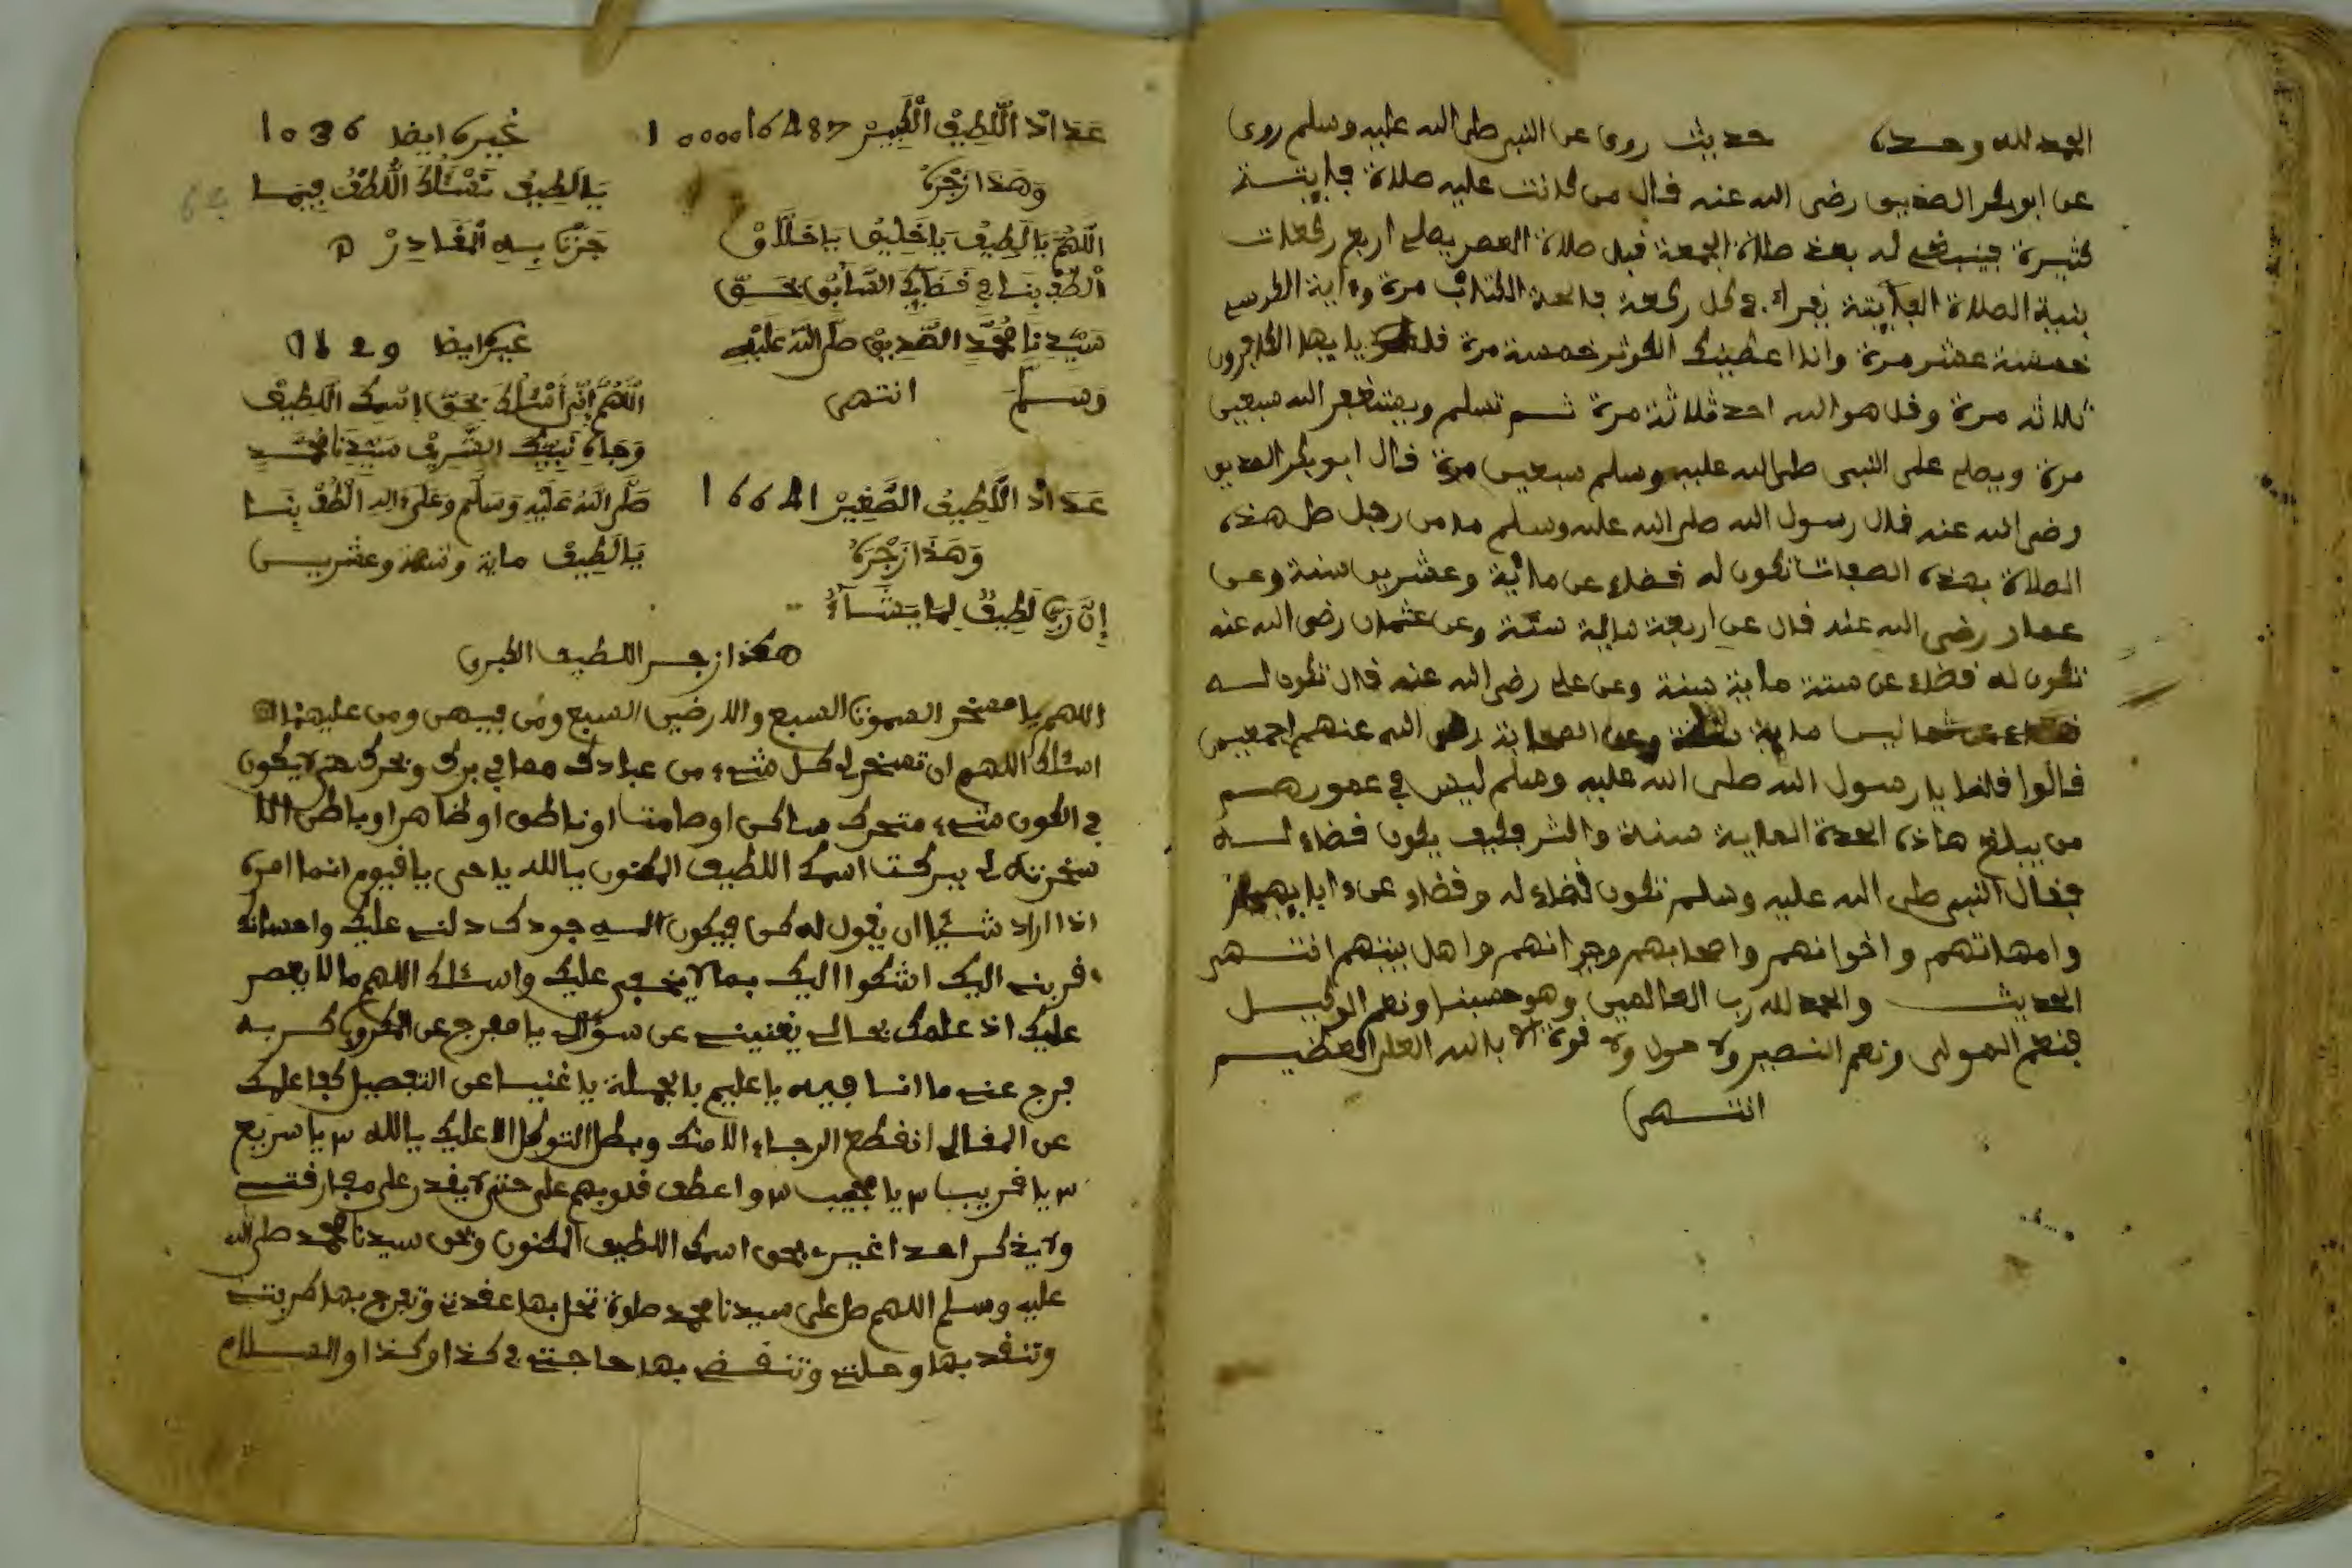 الحمد لله وحده حديث روي عن النبي صلى الله عليه وسلم روى
عن ابو بكر الصديق رضي الله عنه قال من كانت عليه صلاة فايتة
كثيرة فينبغي له بعد صلاة الجمعة قبل صلاة العصر يصلي اربع ركعات
بنية الصلاة الفايتة يقرا في كل ركعة فاتحة الكتاب مرة وءاية الكرسي
خمسة عشر مرة وانا اعطينك الكوثر خمسة مرة قل يايها الكافرون
ثلاثة مرة وقل هو الله احد ثلاثة مرة ثم تسلم ويستغفر الله سبعين
مرة ويصلي على النبي صلى الله عليه وسلم سبعين مرة قال ابو بكر الصديق
رضي الله عنه قال رسول الله صلى الله عليه وسلم ما من رجل صل هذه
الصلاة بهذه الصفات تكون له قضاء عن ماية وعشرين سنة وعن
عمار رضي الله عنه قال عن اربعة ماية سنة وعن عثمان رضي الله عنه
تكون له قضاء عن ستة ماية سنة وعن علي رضي الله عنه قال تكون له
قضاء عن ثمانيا ماية سنة وعن الصحابة رضي الله عنهم اجمعين
قالوا قلنا يا رسول الله صلى الله عليه وسلم ليس في عمورهم
من يبلغ هاذه العدة الماية سنة واكثر فكيف يكون قضاء له
فقال النبي صلى الله عليه وسلم تكون قضاء له وقضاء عن ءابايهم
وامهاتهم واخوانهم واصحابهم وجيرانهم واهل بيتهم انتهى
الحديث والحمد لله رب العالمين وهو حسبنا ونعم الوكيل
فنعم المولى ونعم النصير ولا حول ولا قوة الا بالله العلي العظيم
انتهى
عَدَادْ اللَّطِيفْ الْكَبِيرْ 1000016487
وَهَذَا زَجْرُهُ
اللَّهُمَّ يَا لَطِيفْ يَا خَلِيقْ يَا خَلَّاقْ
الْطُفْ بِنَا فِي قَضَايِكَ السَّابِقْ بِحَقِّ
سَيِّدِنَا مُحَمَّدِ الصَّدِيقْ صَلَّى اللَّهُ عَلَيْهِ
وَسَلَّمَ انتهى
عَدَادْ اللَّطِيفْ الصَّغِيرْ 16641
وَهَذَا زَجْرُهُ
إِنَّ رَبِّي لَطِيفٌ لِمَا يَشَاءُ
غَيْرِهِ ايضا 1036
يَا لَطِيفْ نَسْئَلُكَ اللُّطْفَ فِيمَا
جَرَتْ بِهِ الْمَقَادِرْ
غيره ايضا 129
اللَّهُمَّ إِنِّي أَسْئَلُكَ بِحَقِّ إِسْمِكَ اللَّطِيفْ
وَجَاهِ نَبِيِّكَ الشَّرِيفْ سَيِّدِنَا مُحَمَّدٍ
صَلَّى اللَّهُ عَلَيْهِ وَسَلَّمَ وَعَلَى ءَالِهِ الْطُفْ بِنَا
يَا لَطِيفْ ماية وتسعة وعشرين
هكذا زجر اللطيف الكبرى
اللهم يا مسخر السموت السبع والارضين السبع ومن فيهن ومن عليهن
اسئلك اللهم ان تسخر لي كل شيء من عبادك مما في برك وبحرك حتى لا يكون
في الكون شيء متحرك ساكن او صامت او ناطق او ظاهر او باطن الا
سخرته لي ببركت اسمك اللطيف المكنون يا الله يا حي يا قيوم انما امره
اذا اراد شيئا ان يقول له كن فيكون الهي جودك دلني عليك واحسانك
قربني اليك اشكوا اليك بما لا يخفى عليك واسئلك اللهم ما لا يعصر
عليك اذ علمك بحالي يغنيني عن سؤالي يا مفرج عن المكروب كربه
فرج عني ما انا فيه يا عليم بالجملة يا غنيا عن التفصيل كفا علمك
عن المقال انقطع الرجاء الا منك وبطل التوكل الا عليك يا الله ٣ يا سريع
٣ يا قريب ٣ يا مجيب ٣ واعطف قلوبهم علي حتى لا يقدر على مفارقتي
ولا يذكر احدا غيري بحق اسمك اللطيف المكنون وبحق سيدنا محمد صلى الله
عليه وسلم اللهم صل على سيدنا محمد صلوة تحل بها عقدتي وتفرج بها كربتي
وتنقد بها وحلتي وتنقض بها حاجتي في كذا وكذا والسلام